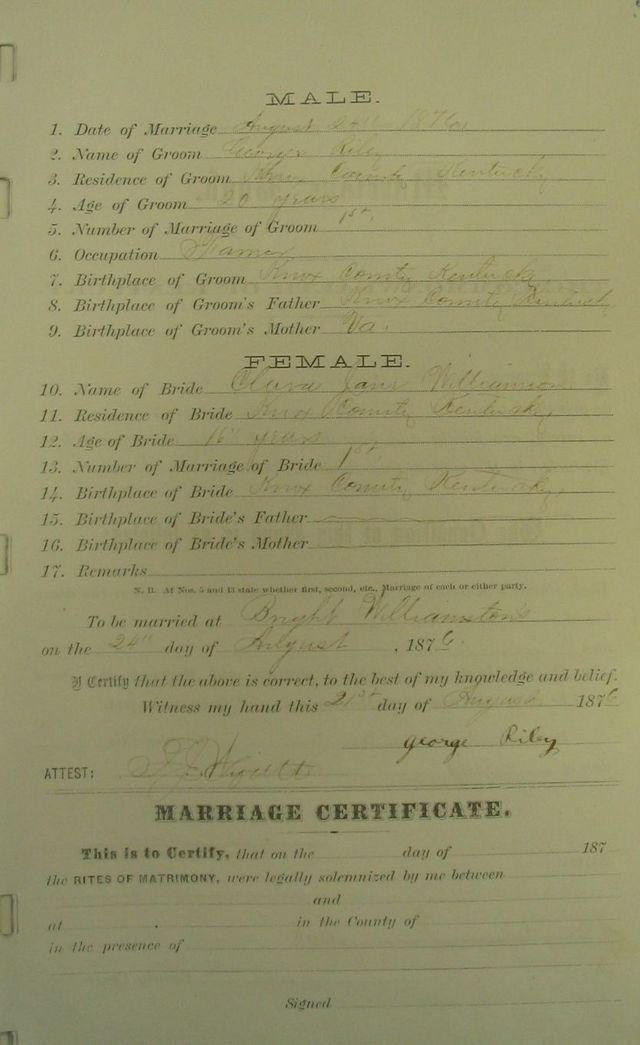 MALE.
1. Date of Marriage August 24" 1876
2. Name of Groom George Riley
3. Residence of Groom Knox County Kentucky
4. Age of Groom 20 years
5. Number of Marriage of Groom 1st.
6. Occupation Farmer
7. Birthplace of Groom Knox County Kentucky
8. Birthplace of Groom's Father Knox County Kentucky
9. Birthplace of Groom's Mother Va.
FEMALE.
10. Name of Bride Jane Williamson
11. Residence of Bride Knox County Kentucky
12. Age of Bride 16" years
13. Number of Marriage of Bride 1st.
14. Birthplace of Bride Knox County Kentucky
15. Birthplace of Bride's Father
16. Birthplace of Bride's Mother
17. Remarks
N. B. At Nos. 5 and 13 state whether first, second, etc., Marriage of each or either party.
To be married at Bright Williamston's
on the 24" day of August, 1876.
I Certify that the above is correct, to the best of my knowledge and belief.
Witness my hand this 21st day of August 1876
george Riley
ATTEST:
MARRIAGE CERTIFICATE.
This is to Certify, that on the day of 187
the RITES OF MATRIMONY, were legally solemnized by me between
and
at in the County of
in the presence of
Signed